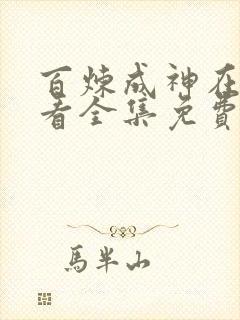 百炼成神在
看全集免費
馬半山